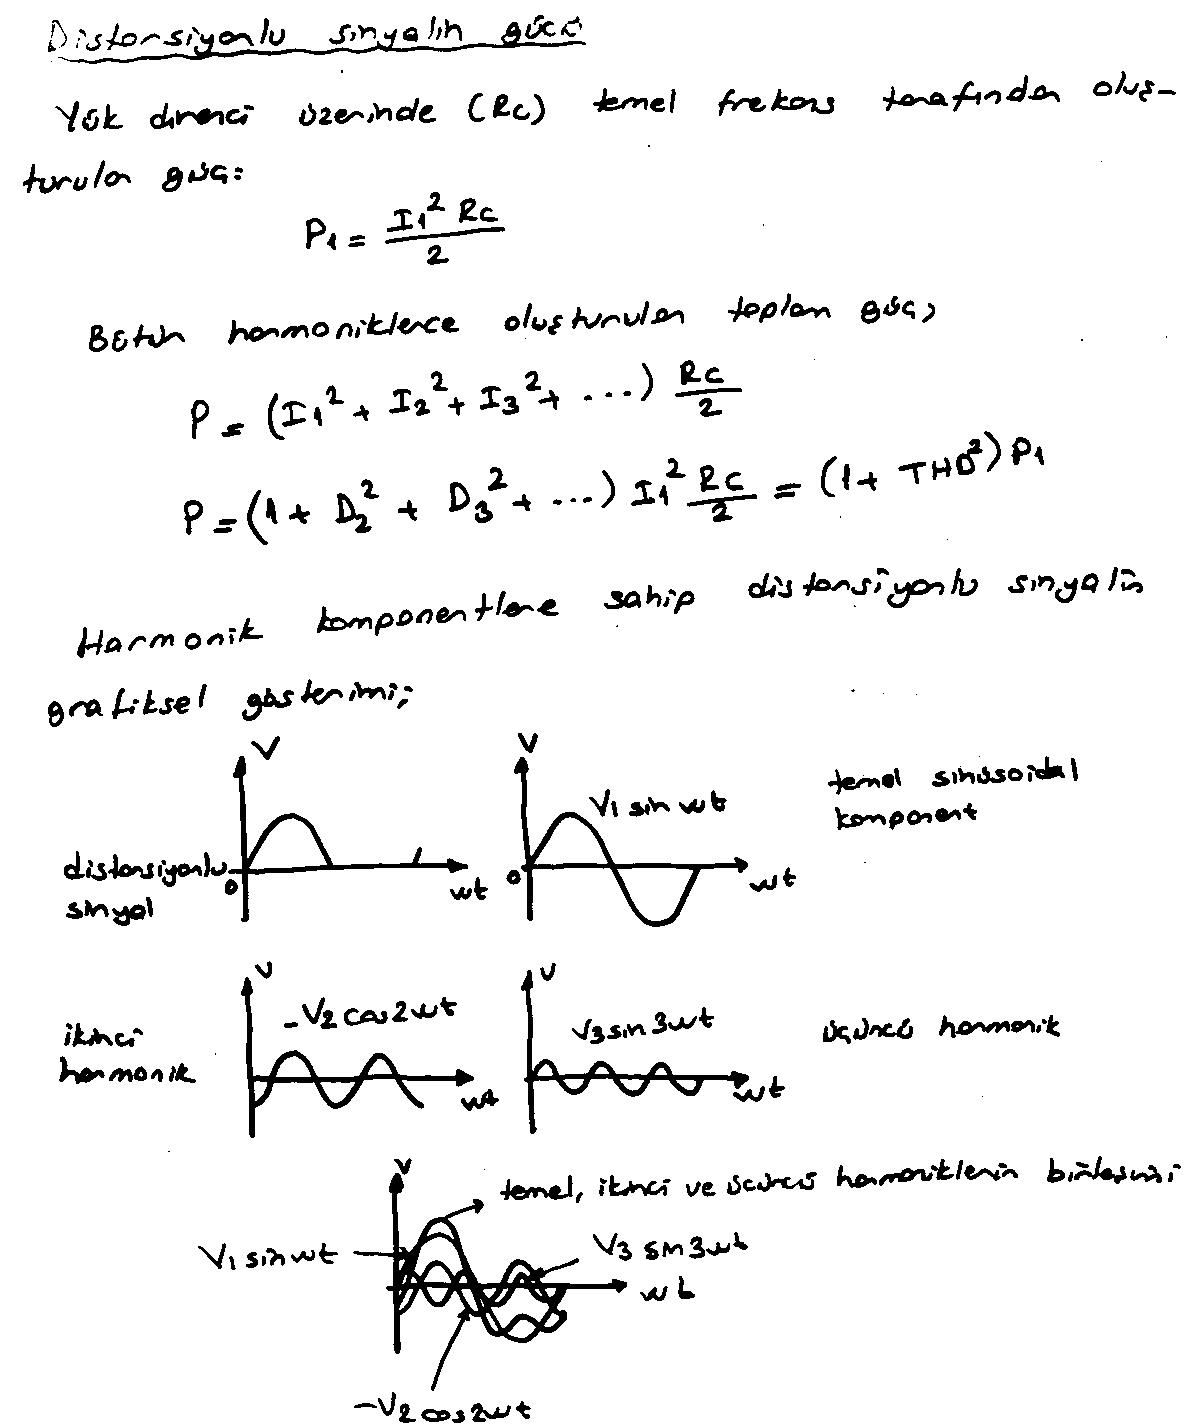 Distorsiyonlu sinyalin gücü
Yük direnci üzerinde (Rc) temel frekans tarafından oluş-
turulan güç:
P1 = I1² Rc / 2
Bütün harmoniklerce oluşturulan toplam güç,
P = (I1² + I2² + I3² + ...) Rc / 2
P = (1 + D2² + D3² + ...) I1² Rc / 2 = (1 + THD²) P1
Harmonik komponentlere sahip distorsiyonlu sinyalin
grafiksel gösterimi;
V
V
V1 sin wt
temel sinüsoidal
komponent
distorsiyonlu
sinyal
0
wt
0
wt
V
V
-V2 cos2wt
V3 sin 3wt
ikinci
harmonik
üçüncü harmonik
wt
wt
V
temel, ikinci ve üçüncü harmoniklerin birleşimi
V1 sin wt
V3 sin 3wt
wt
-V2 cos2wt